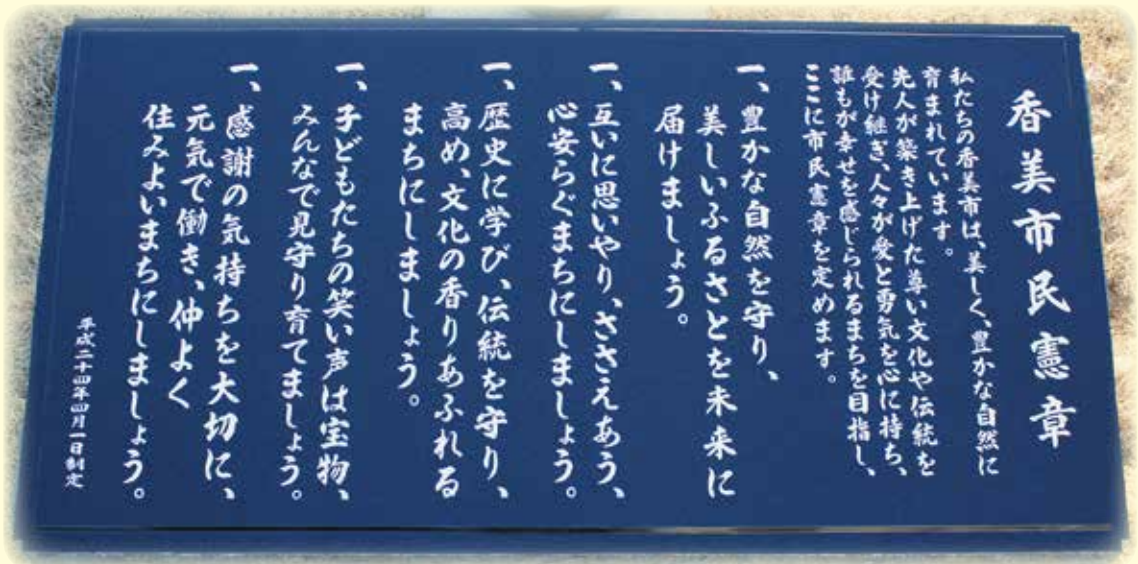 香美市民憲章
私たちの香美市は、美しく、豊かな自然に
育まれています。
先人が築き上げた尊い文化や伝統を
受け継ぎ、人々が愛と勇気を心に持ち、
誰もが幸せを感じられるまちを目指し、
ここに市民憲章を定めます。
一、豊かな自然を守り、
美しいふるさとを未来に
届けましょう。
一、互いに思いやり、ささえあう、
心安らぐまちにしましょう。
一、歴史に学び、伝統を守り、
高め、文化の香りあふれる
まちにしましょう。
一、子どもたちの笑い声は宝物、
みんなで見守り育てましょう。
一、感謝の気持ちを大切に、
元気で働き、仲よく
住みよいまちにしましょう。
平成二十四年四月一日制定